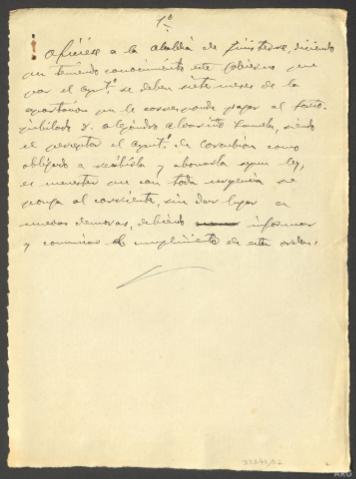 1º
Ofíciese a la Alcaldía de Finisterre, diciendo
que teniendo conocimiento este Gobierno que
por el Aytº se deben siete meses de la
aportación que le corresponde pagar al
jubilado D. Alejandro siendo
el perceptor el Aytº de Corcubión como
obligado a recibirla y abonarla segun ley,
es menester que con toda urgencia se
ponga al corriente, sin dar lugar a
nuevas demoras, debiendo informar
y comunicar el cumplimiento de esta orden.